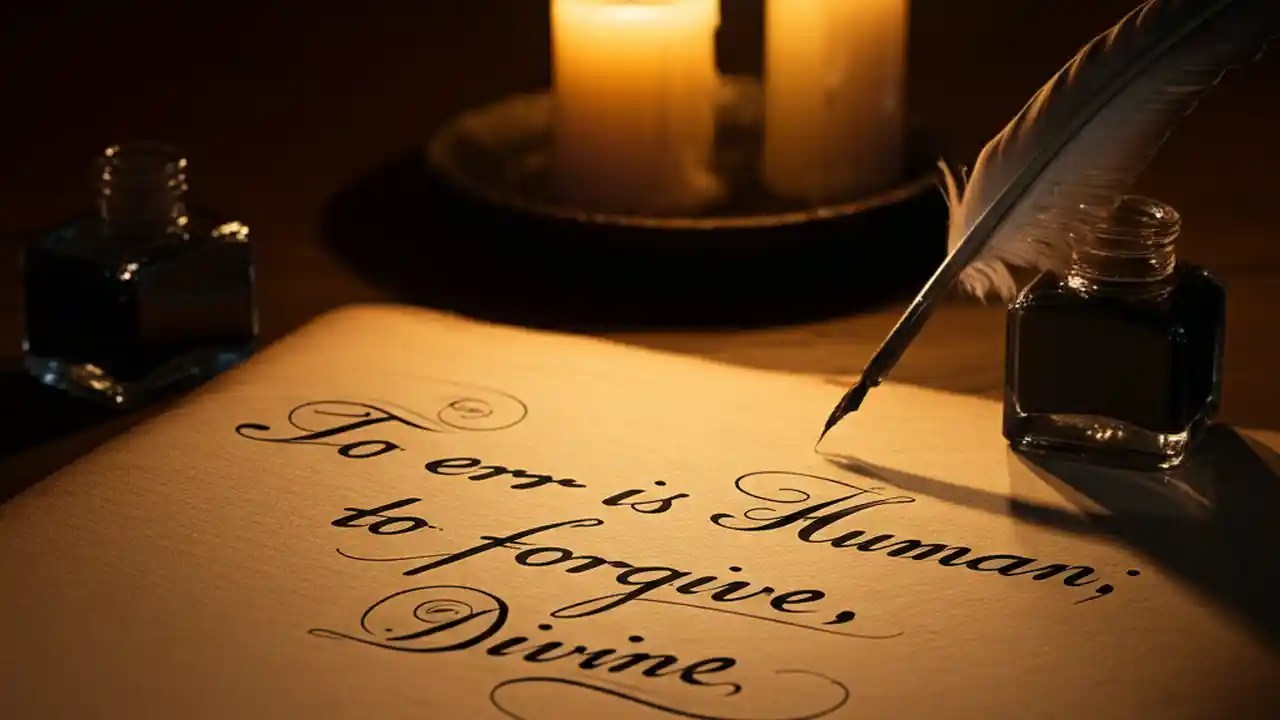 To err is Human;
to forgive,
Divine.